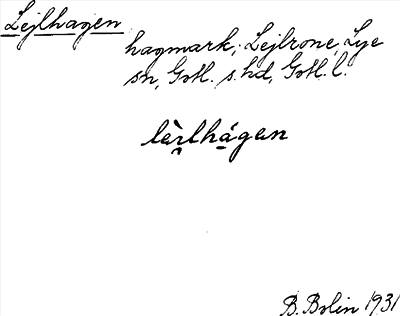 Lejlhagen
hagmark, Lejlrone, Lye
sn, Gotl. s. hd, Gotl. l.
lèrlhágen
B. Bolin 1931